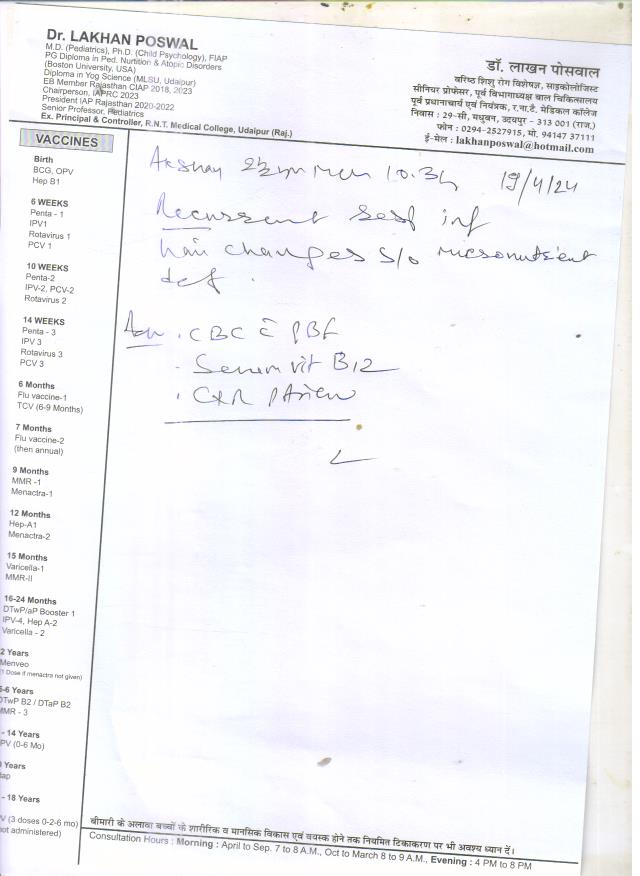 Dr. LAKHAN POSWAL
M.D. (Pediatrics), Ph.D. (Child Psychology), FIAP
PG Diploma in Ped. Nurtition & Atopic Disorders
(Boston University, USA)
Diploma in Yog Science (MLSU, Udaipur)
EB Member Rajasthan CIAP 2018, 2023
Chairperson, IAPRC 2023
President IAP Rajasthan 2020-2022
Senior Professor, Pediatrics
Ex. Principal & Controller, R.N.T. Medical College, Udaipur (Raj.)
डॉ. लाखन पोसवाल
वरिष्ठ शिशु रोग विशेषज्ञ, साइकोलोजिस्ट
सीनियर प्रोफेसर, पूर्व विभागाध्यक्ष बाल चिकित्सालय
पूर्व प्रधानाचार्य एवं नियंत्रक, र.ना.टै. मेडिकल कॉलेज
निवास : 29-सी, मधुबन, उदयपुर - 313 001 (राज.)
फोन : 0294-2527915, मो. 94147 37111
ई-मेल : lakhanposwal@hotmail.com
VACCINES
Birth
BCG, OPV
Hep B1
6 WEEKS
Penta - 1
IPV1
Rotavirus 1
PCV 1
10 WEEKS
Penta-2
IPV-2, PCV-2
Rotavirus 2
14 WEEKS
Penta - 3
IPV 3
Rotavirus 3
PCV 3
6 Months
Flu vaccine-1
TCV (6-9 Months)
7 Months
Flu vaccine-2
(then annual)
9 Months
MMR -1
Menactra-1
12 Months
Hep-A1
Menactra-2
15 Months
Varicella-1
MMR-II
16-24 Months
DTwP/aP Booster 1
IPV-4, Hep A-2
Varicella - 2
2 Years
Menveo
(1 Dose if menactra not given)
5-6 Years
DTwP B2 / DTaP B2
MMR - 3
- 14 Years
PV (0-6 Mo)
Years
dap
- 18 Years
V (3 doses 0-2-6 mo)
not administered)
Akshay 10.3k 19/4/24
Recurrent resp inf
hair changes s/o micronutrient
def.
. CBC c̄ PBF
- Serum vit B12
. CXR PA view
बीमारी के अलावा बच्चों के शारीरिक व मानसिक विकास एवं वयस्क होने तक नियमित टिकाकरण पर भी अवश्य ध्यान दें।
Consultation Hours : Morning : April to Sep. 7 to 8 A.M., Oct to March 8 to 9 A.M., Evening : 4 PM to 8 PM